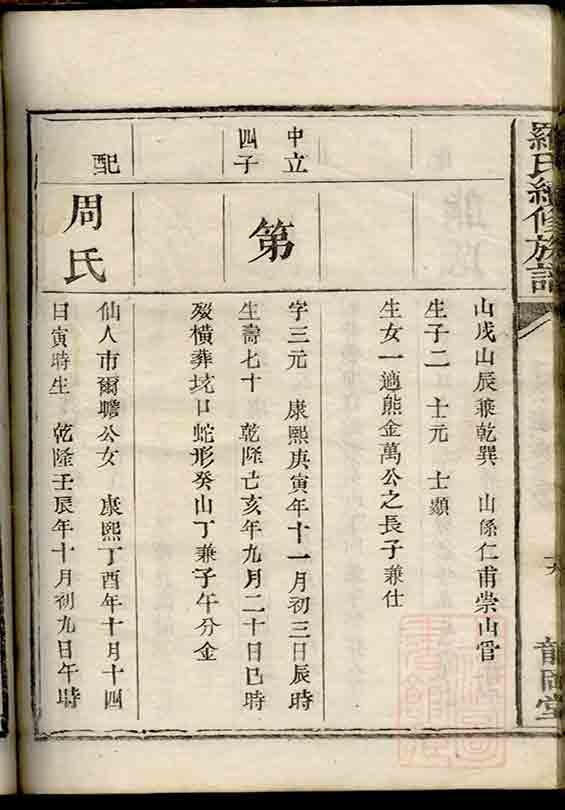 羅氏續修族譜
龍岡堂
山戌山辰兼乾巽 山係仁甫崇山管
生子二 士元 士顯
生女一適熊金萬公之長子兼仕
中立
四子
第
字三元 康熙庚寅年十一月初三日辰時
生壽七十 乾隆己亥年九月二十日巳時
歿橫葬坑口蛇形癸山丁兼子午分金
配
周氏
仙人市爾瞻公女 康熙丁酉年十月十四
日寅時生 乾隆壬辰年十月初九日午時